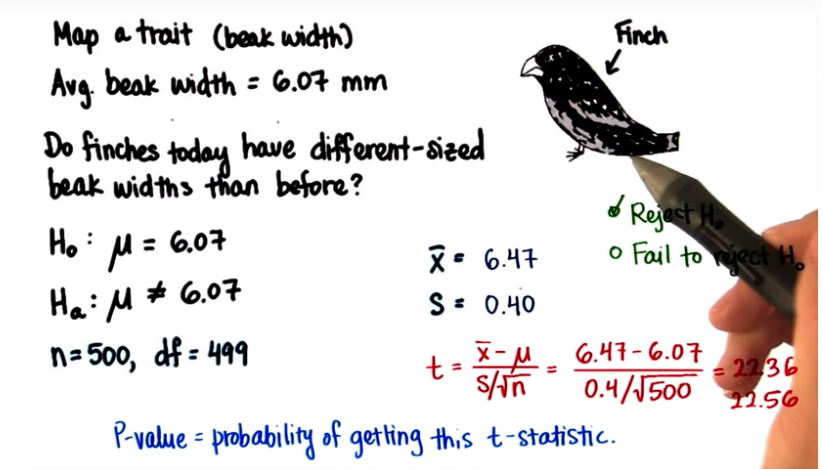 Map a trait (beak width)
Avg. beak width = 6.07 mm
Finch
Do finches today have different-sized
beak widths than before?
H₀: μ = 6.07
Hₐ: μ ≠ 6.07
n=500, df = 499
x̄ = 6.47
S = 0.40
Reject H₀
Fail to reject H₀
t = x̄ - μ / S/√n = 6.47 - 6.07 / 0.4/√500 = 22.36
22.56
P-value = probability of getting this t-statistic.